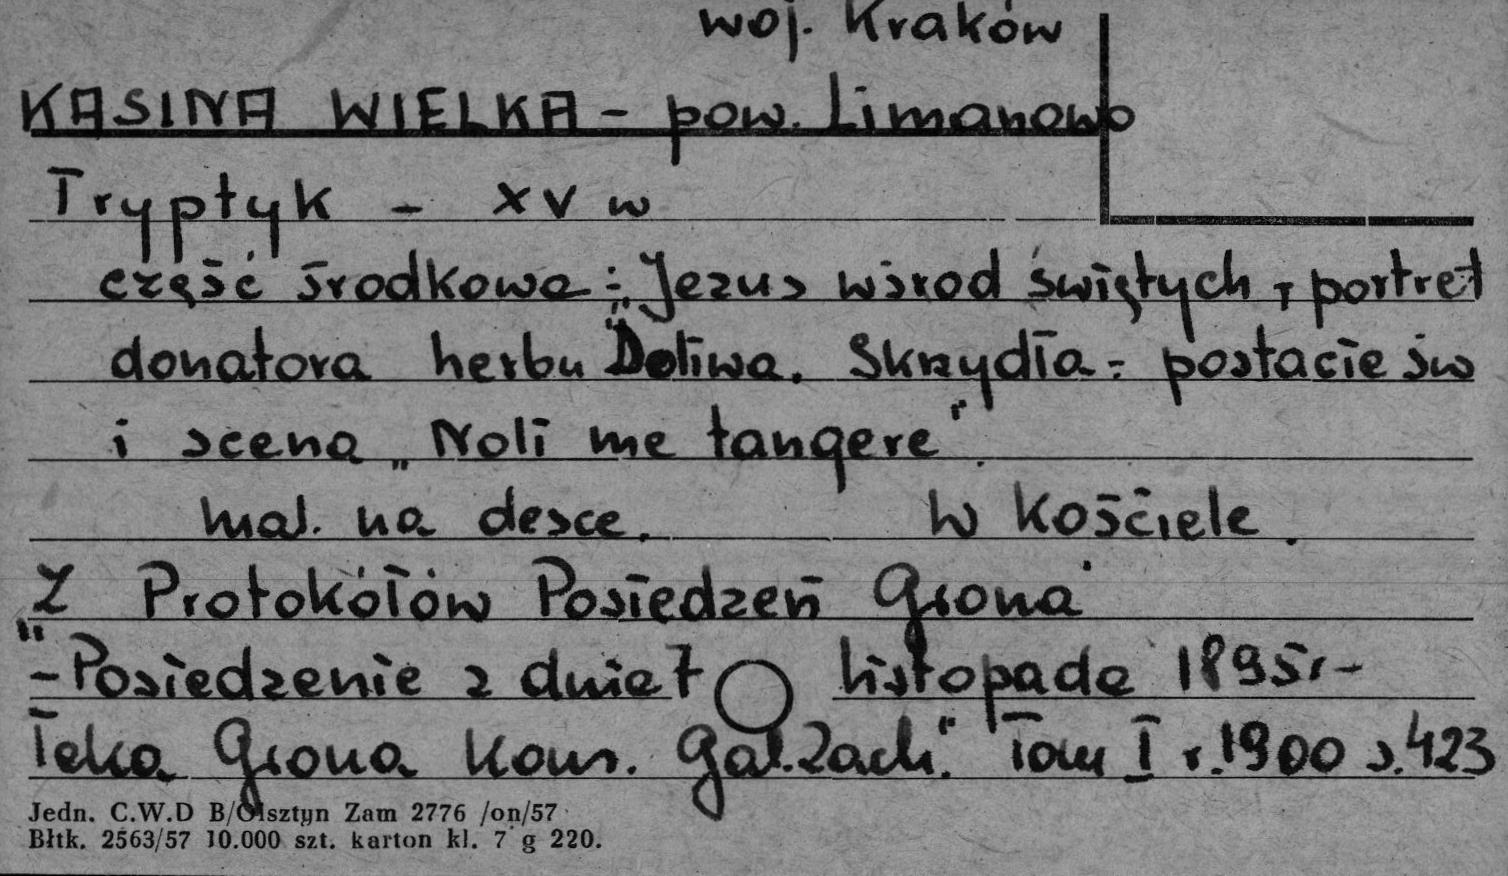 woj. Kraków
KASINA WIELKA - pow. Limanowo
Tryptyk - XV w
część środkowa: Jezus wśrod świętych, portret
donatora herbu "Doliwa. Skrzydła - postacie św
i scena „Noli me tangere".
mal. na desce. W kościele.
Z Protokółów Posiedzeń Grona
"-Posiedzenie z dnia 7 listopada 1895r-
Teka Grona Kons. Gal. Zach." Tom I r. 1900 s. 423
Jedn. C.W.D B/Olsztyn Zam 2776 /on/57
Błtk. 2563/57 10.000 szt. karton kl. 7 g 220.